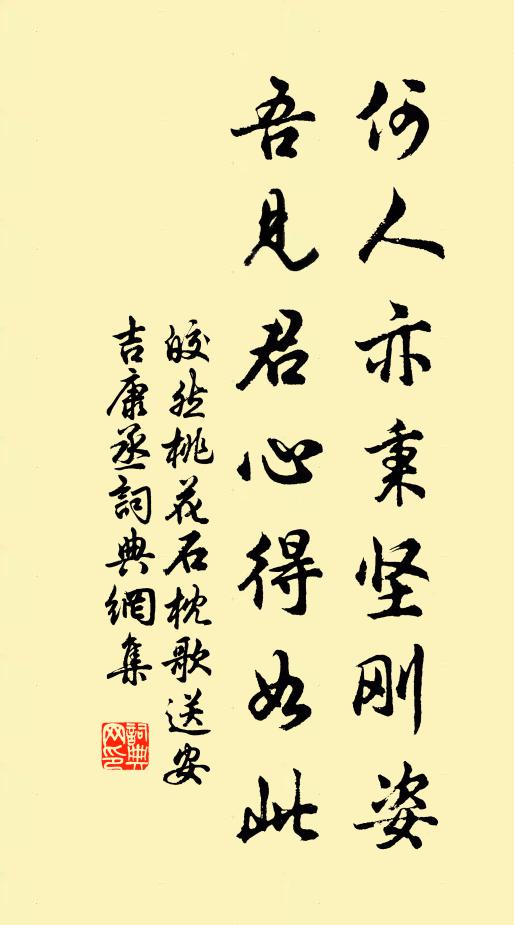 何人亦秉坚刚姿
吾见君心得如此
皎然桃花石枕歌送安
吉康丞詞典網集
詞典
网印